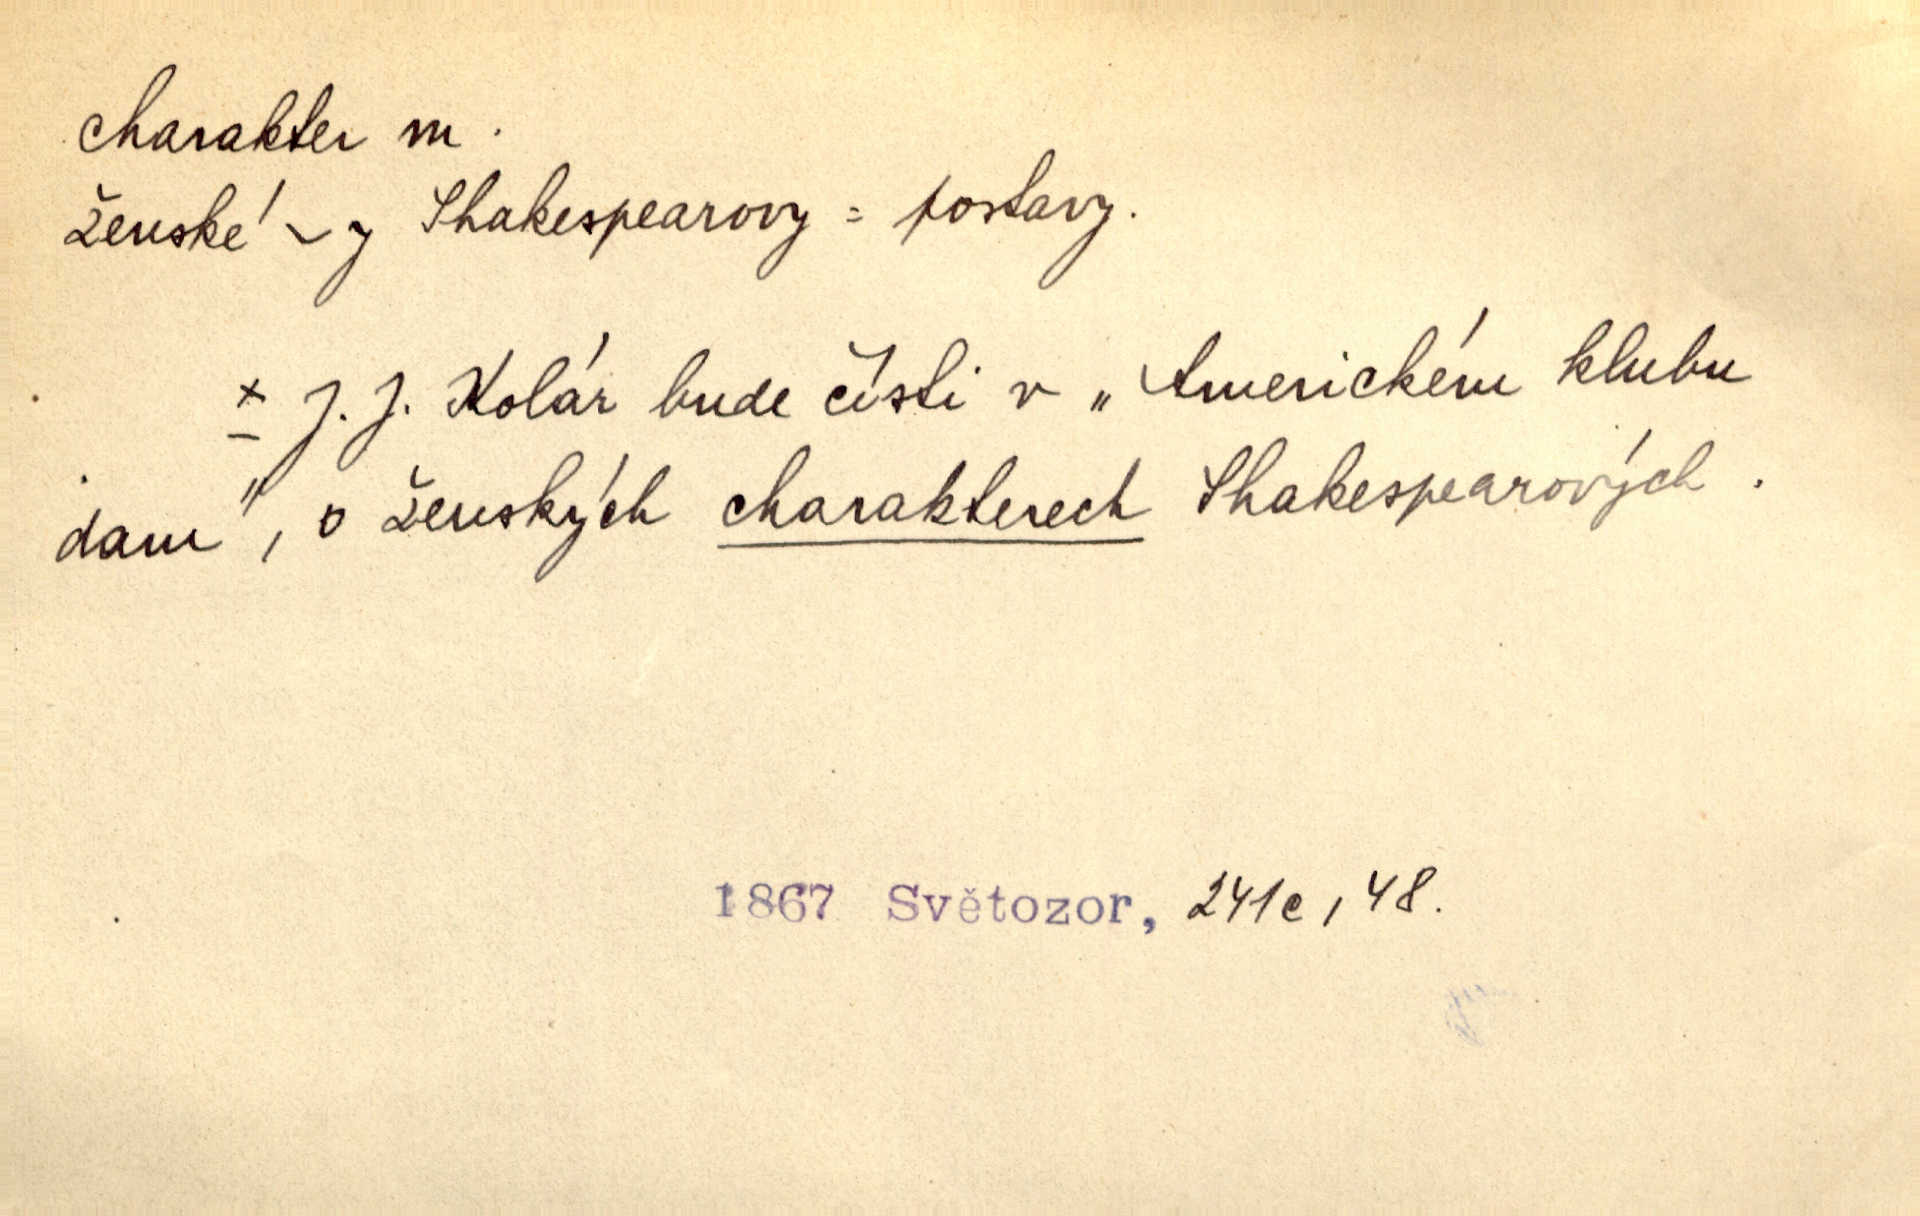 charakter m.
ženské ~y Shakespearovy = postavy.
× J. J. Kolár bude čísti v „Americkém klubu
dam", o ženských charakterech Shakespearových.
1867 Světozor, 241c, 48.